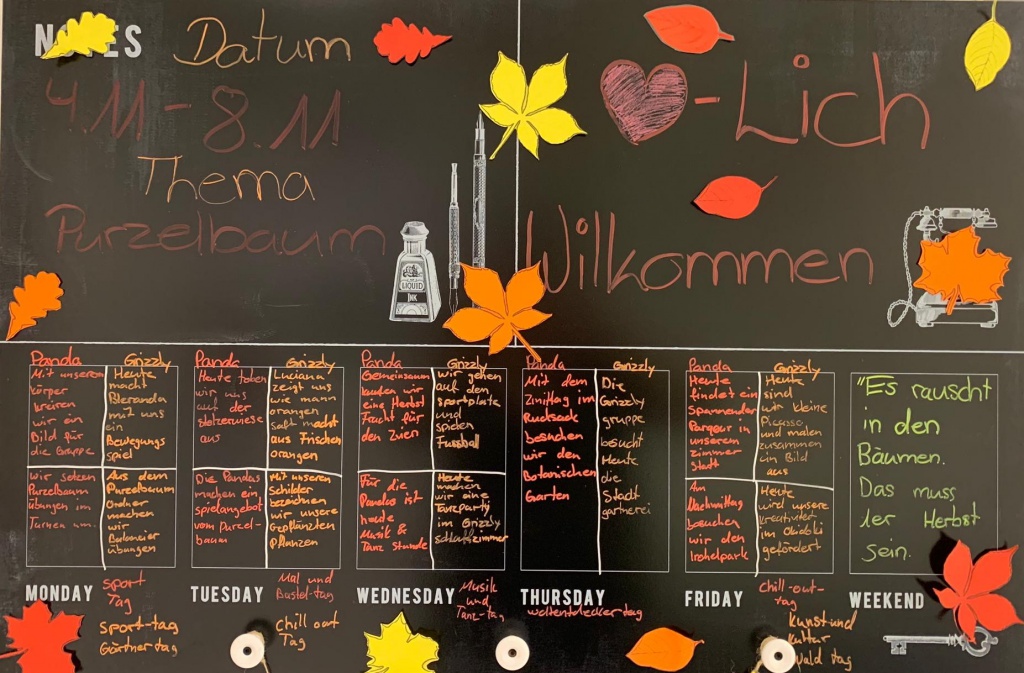 NOTES Datum
4.11 - 8.11
Thema
Purzelbaum
LIQUID
INK
-Lich
Wilkommen
Panda
Mit unserem
körper
kreiren
wir ein
Bild für
die Gruppe
Grizzly
Heute
macht
Bleranda
mit uns
ein
Bewegungs
spiel
wir setzen
Purzelbaum
übungen im
Turnen um.
Aus dem
Purzelbaum
Ordner
machen
wir
übungen
MONDAY
sport
Tag
sport-tag
Gärtnertag
Panda
Heute toben
wir uns
auf der
stelzenwiese
aus
Grizzly
Luciana
zeigt uns
wie mann
orangen
saft macht
aus Frischen
orangen
Die Pandas
machen ein
spielangebot
vom Purzel-
baum
Mit unseren
Schilder
bezeichnen
wir unsere
Gepflänzten
Pflanzen
TUESDAY
Mal und
Bastel-tag
chill out
Tag
Panda
Gemeinsam
kaufen wir
eine Herbst
Frucht für
den Zvieri
Grizzly
wir gehen
auf den
sportplatz
und
spielen
Fussball
Für die
Pandas ist
heute
Musik &
Tanz Stunde
Heute
machen
wir eine
Tanzparty
im Grizzly
schlafzimmer
WEDNESDAY
Musik
und
Tanz-tag
Panda
Mit dem
Znüni im
Rucksack
besuchen
wir den
Botanischen
Garten
Grizzly
Die
Grizzly
gruppe
besucht
Heute
die
Stadt
gärtnerei
THURSDAY
weltentdecker tag
Panda
Heute
findet ein
spannender
Parqour in
unserem
zimmer
Statt
Grizzly
Heute
sind
wir kleine
Picasso
und malen
zusammen
ein Bild
aus
Am
Nachmittag
besuchen
wir den
Irchelpark
Heute
wird unsere
kreativität
im
gefördert
FRIDAY
chill-out-
tag
kunst und
kultur
wald tag
"Es rauscht
in den
Bäumen.
Das muss
der Herbst
sein.
WEEKEND